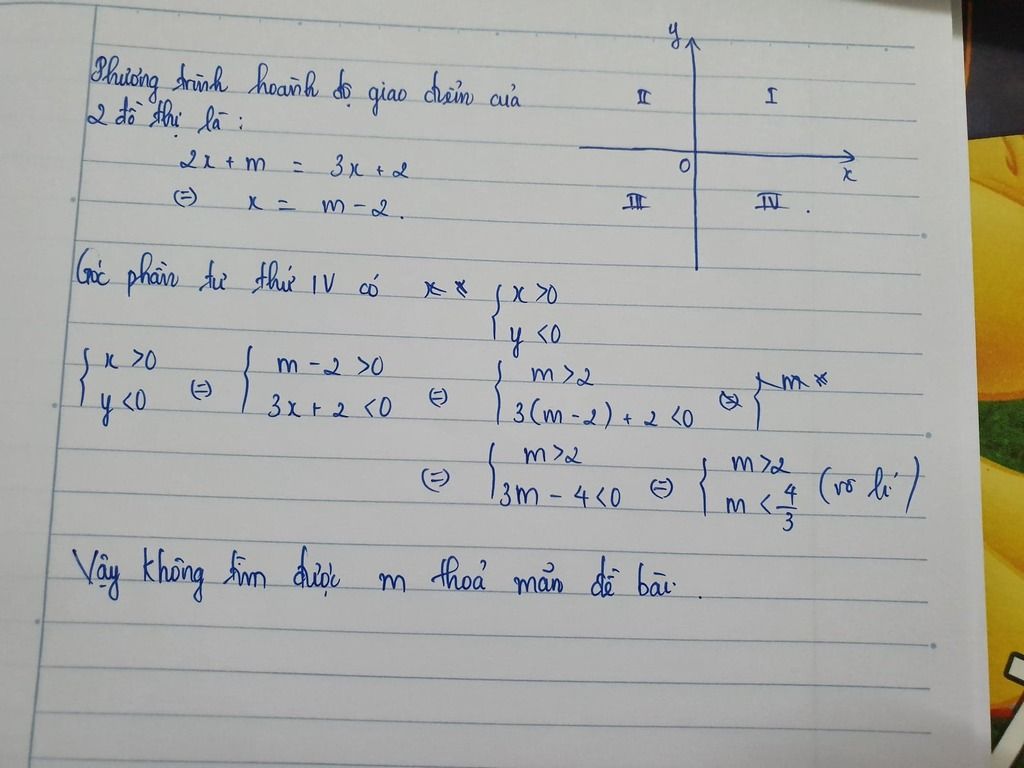 Phương trình hoành độ giao điểm của
2 đồ thị là:
2x + m = 3x + 2
(=) x = m - 2.
y
II I
O x
III IV .
Góc phần tư thứ IV có { x > 0
y < 0
{ x > 0 (=) { m - 2 > 0 (=) { m > 2 (=) { m
y < 0 3x + 2 < 0 3(m - 2) + 2 < 0
(=) { m > 2 (=) { m > 2 (vô lí)
3m - 4 < 0 m < 4/3
Vậy không tìm được m thoả mãn đề bài.